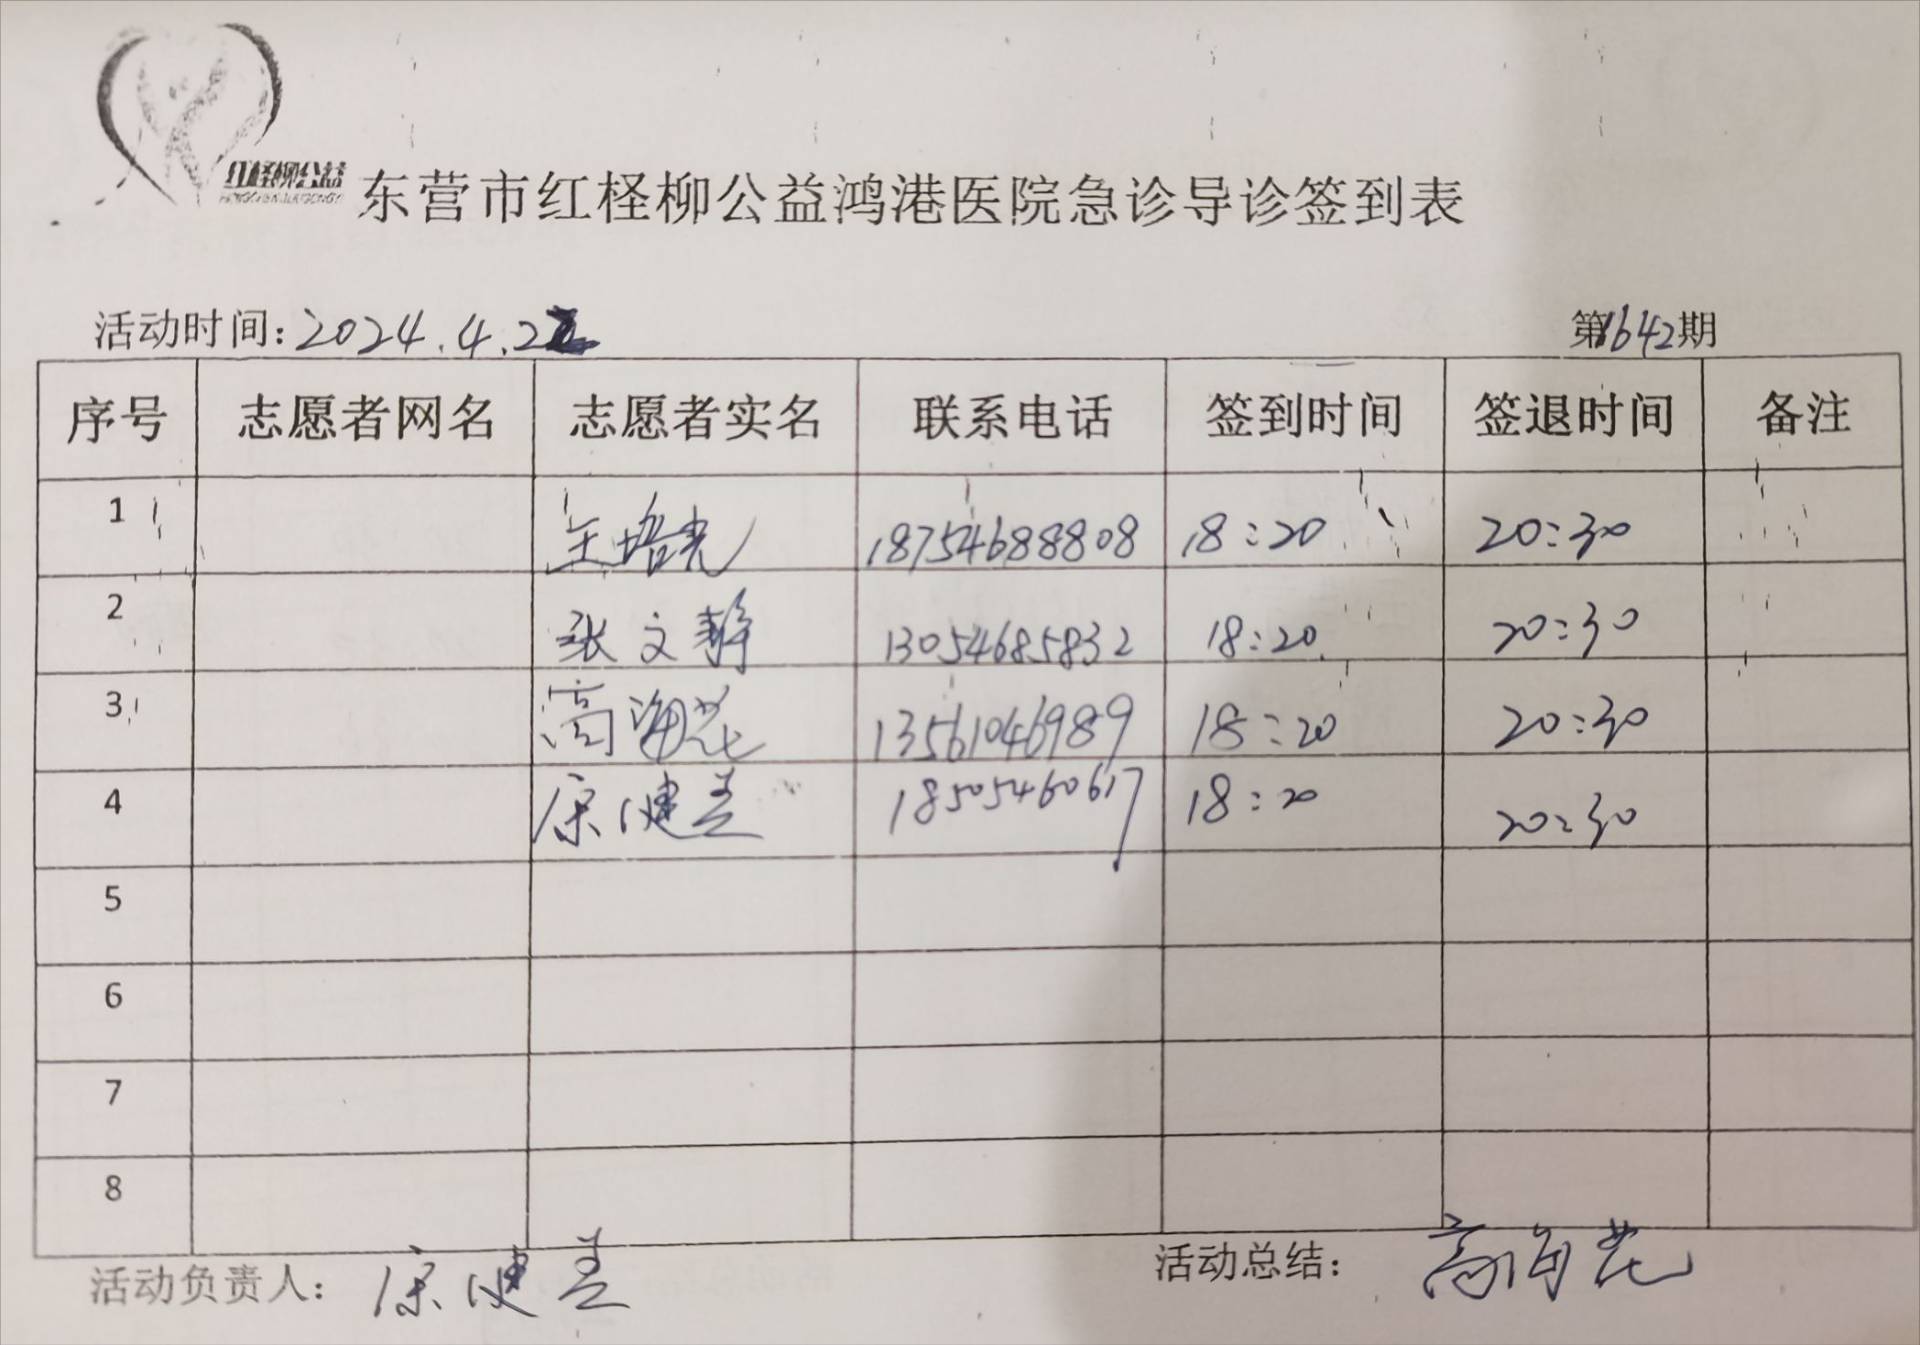 红柽柳公益
东营市红柽柳公益鸿港医院急诊导诊签到表
活动时间:2024.4.22
第1642期
序号 志愿者网名 志愿者实名 联系电话 签到时间 签退时间 备注
1 王培亮 18754688808 18:20 20:30
2 张文静 13054685832 18:20 20:30
3 高海花 13561046989 18:20 20:30
4 原健美 18505460617 18:20 20:30
5
6
7
8
活动负责人: 原健美
活动总结: 高海花